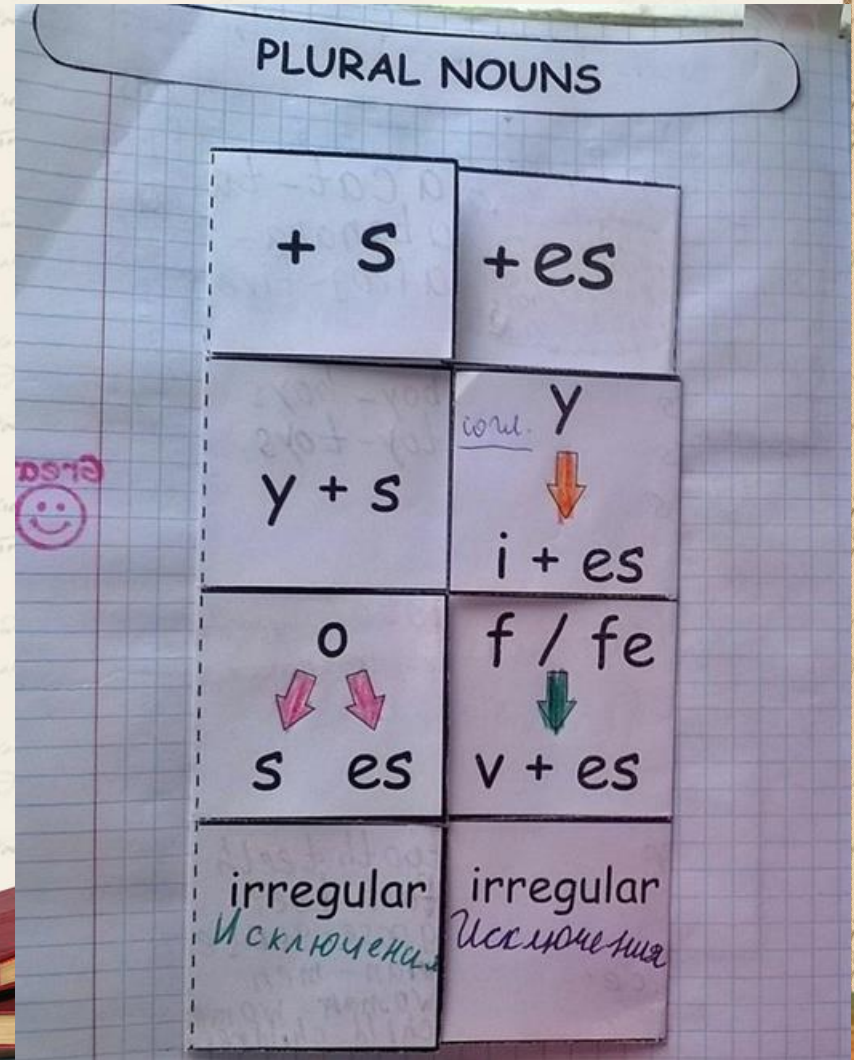 PLURAL NOUNS
+ s
+ es
y + s
согл. y
i + es
o
s es
f / fe
v + es
irregular
Исключения
irregular
Исключения